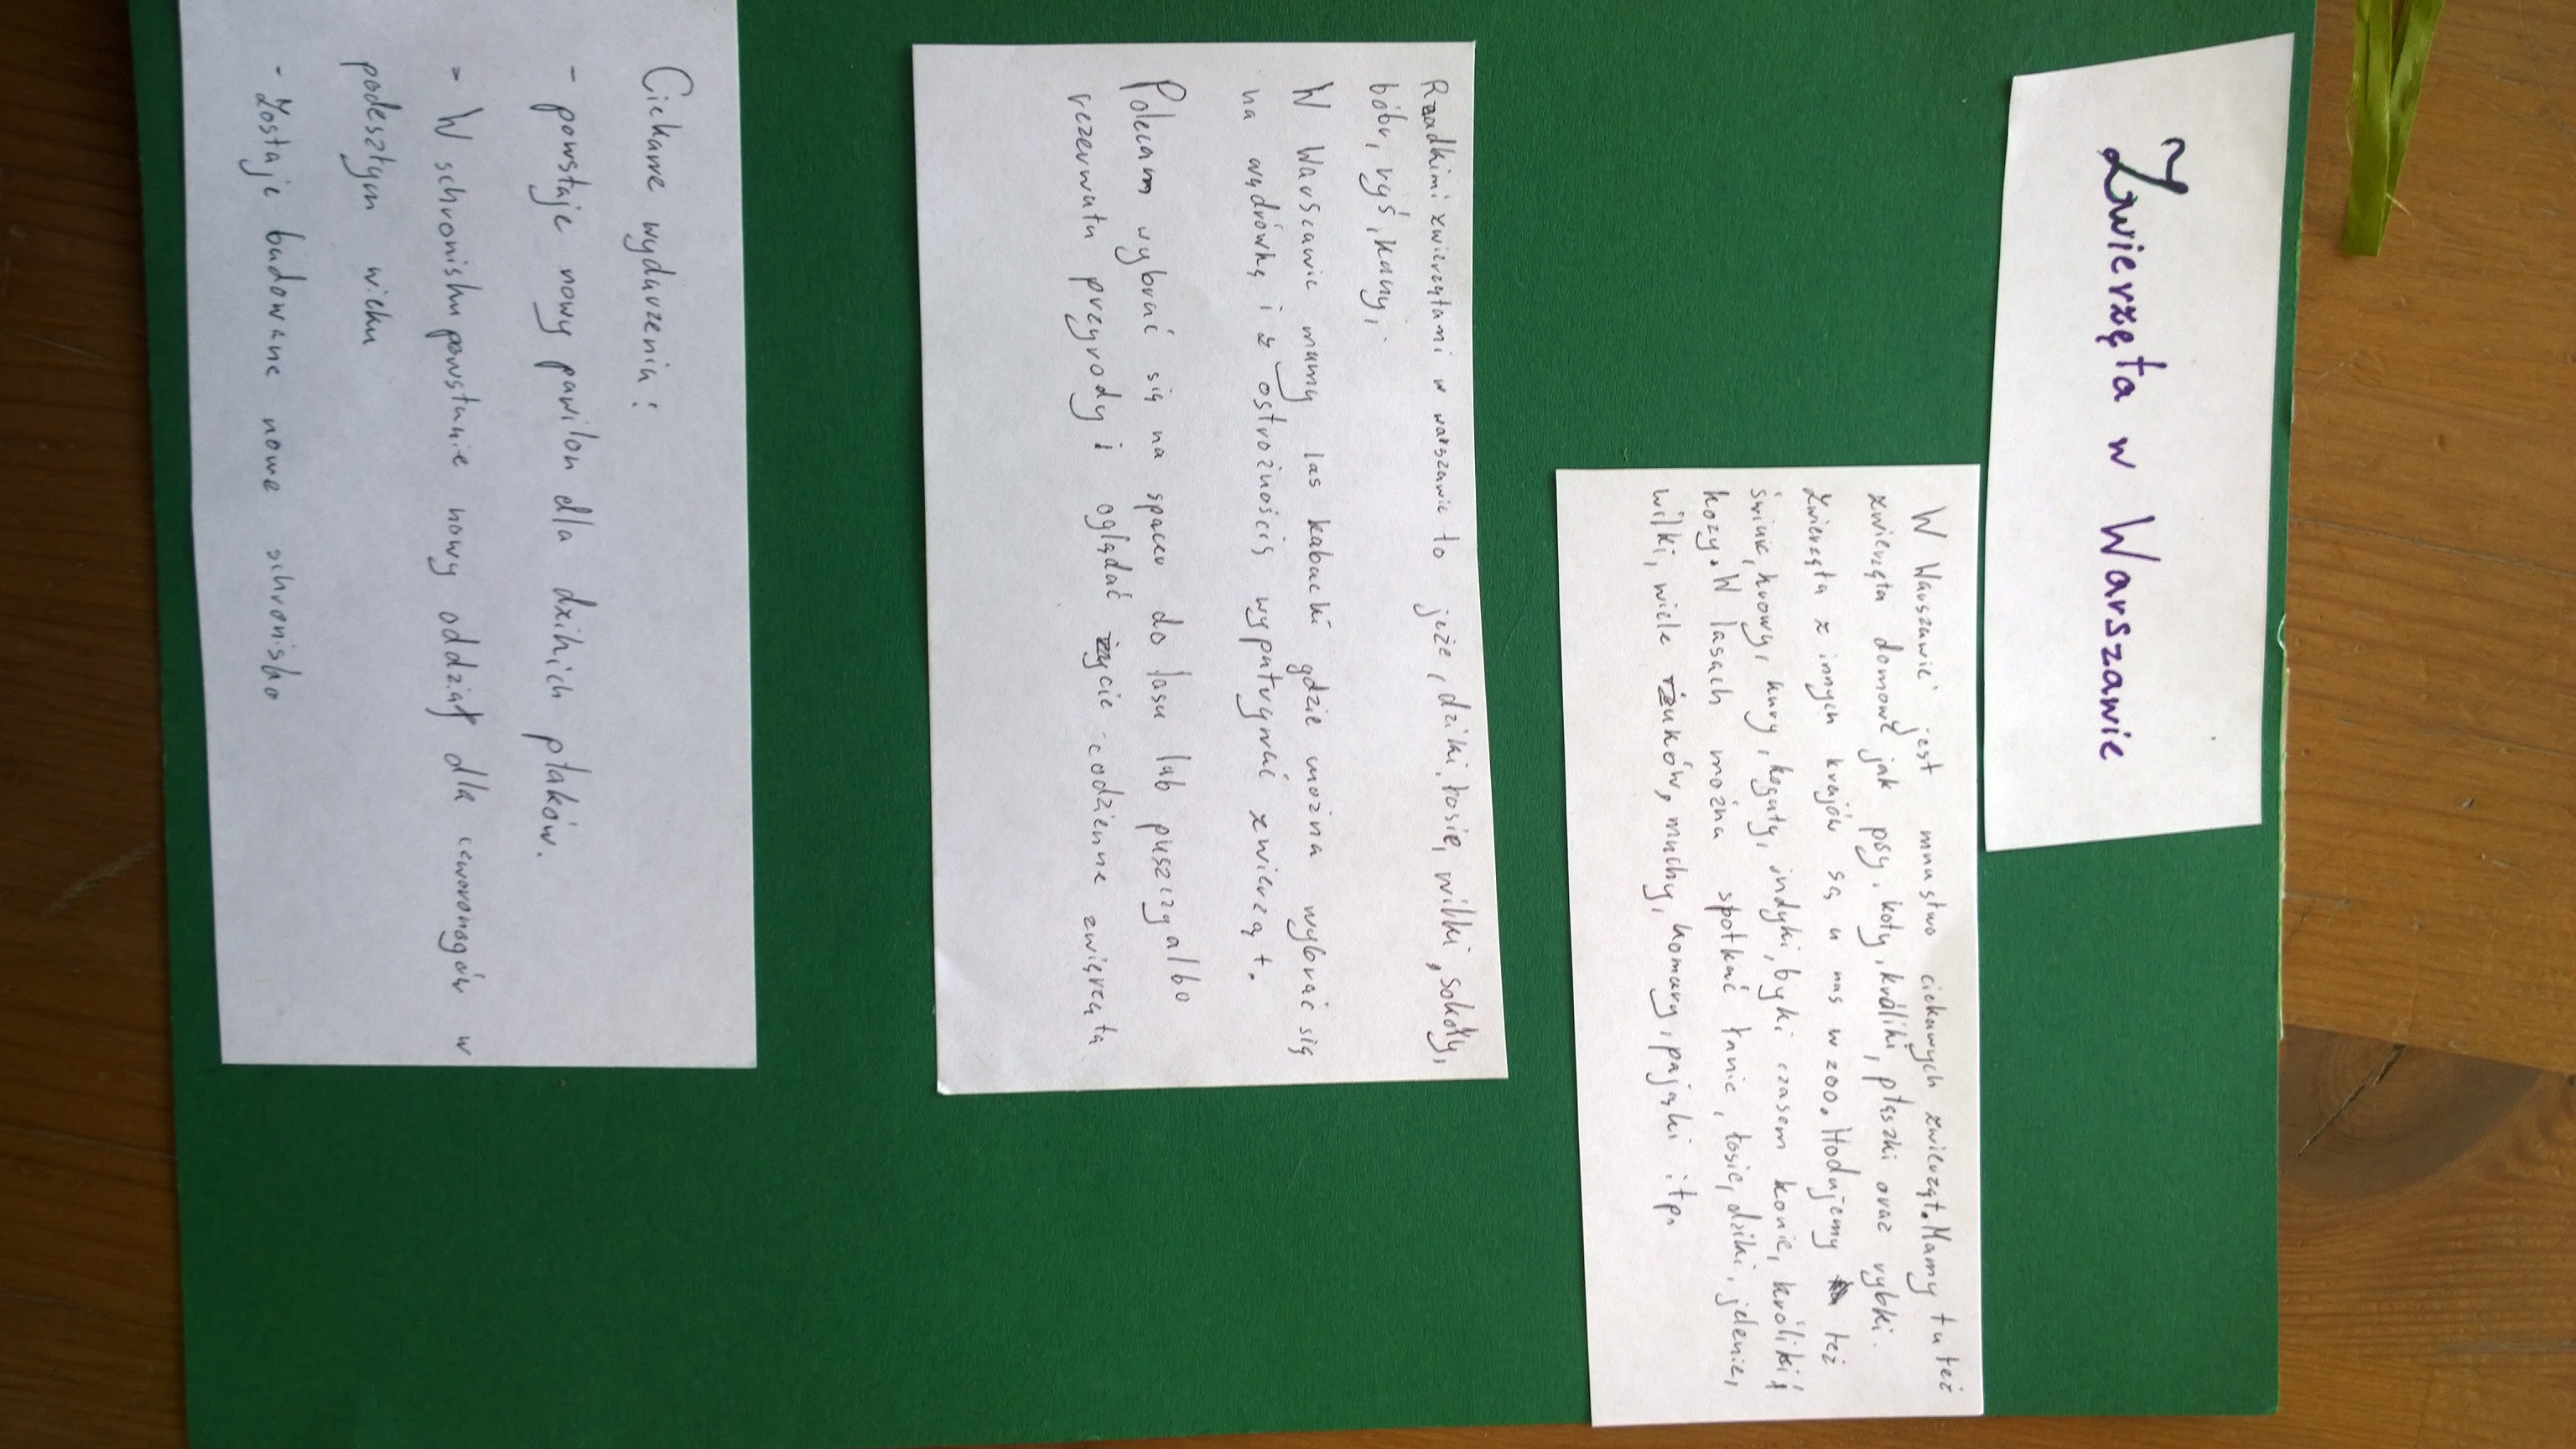 Zwierzęta w Warszawie
W Warszawie jest mnustwo ciekawych zwierząt. Mamy tu też
zwierzęta domowe jak psy, koty, króliki, ptaszki oraz rybki.
Zwierzęta z innych krajów są u nas w zoo. Hodujemy też
świnie, krowy, kury, koguty, indyki, byki czasem konie, króliki i
kozy. W lasach można spotkać łanie, łosie, dziki, jelenie,
wilki, wiele żuków, muchy, komary, pająki itp.
Rzadkimi zwierzętami w warszawie to jeże, dziki, łosie, wilki, sokoły,
bóbr, ryś, kany,
W Warszawie mamy las kabacki gdzie można wybrać się
na wądrówkę i z ostrożnością wypatrywać zwierząt.
Polecam wybrać się na spacer do lasu lub puszczy albo
rezerwatu przyrody i oglądać życie codzienne zwięrzęta
Ciekawe wydarzenia:
- powstaje nowy pawilon dla dzikich ptaków.
- W schronisku powstanie nowy oddział dla czworonogów w
podeszłym wieku
- Zostaje budowane nowe schronisko